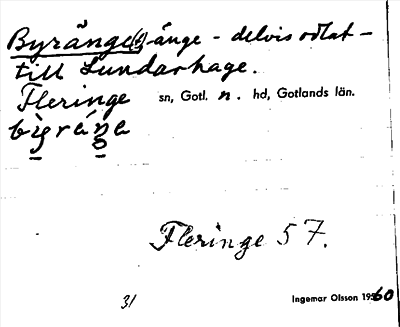 Byränge(t) -änge - delvis odlat -
till Lundarhage.
Fleringe sn, Gotl. n. hd, Gotlands län.
Fleringe 57.
31 Ingemar Olsson 1960